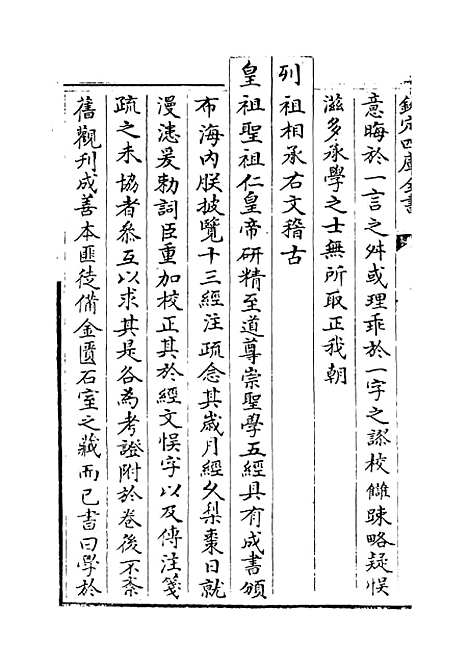 欽定四庫全書
意晦於一言之舛或理乖於一字之謬校讎踈略疑悮
滋多承學之士無所取正我朝
列祖相承右文稽古
皇祖聖祖仁皇帝研精至道尊崇聖學五經具有成書頒
布海內朕披覽十三經注疏念其歲月經久梨棗日就
漫漶爰勅詞臣重加校正其於經文悮字以及傳注箋
疏之未協者叅互以求其是各為考證附於卷後不紊
舊觀刊成善本匪徒備金匱石室之藏而已書曰學於